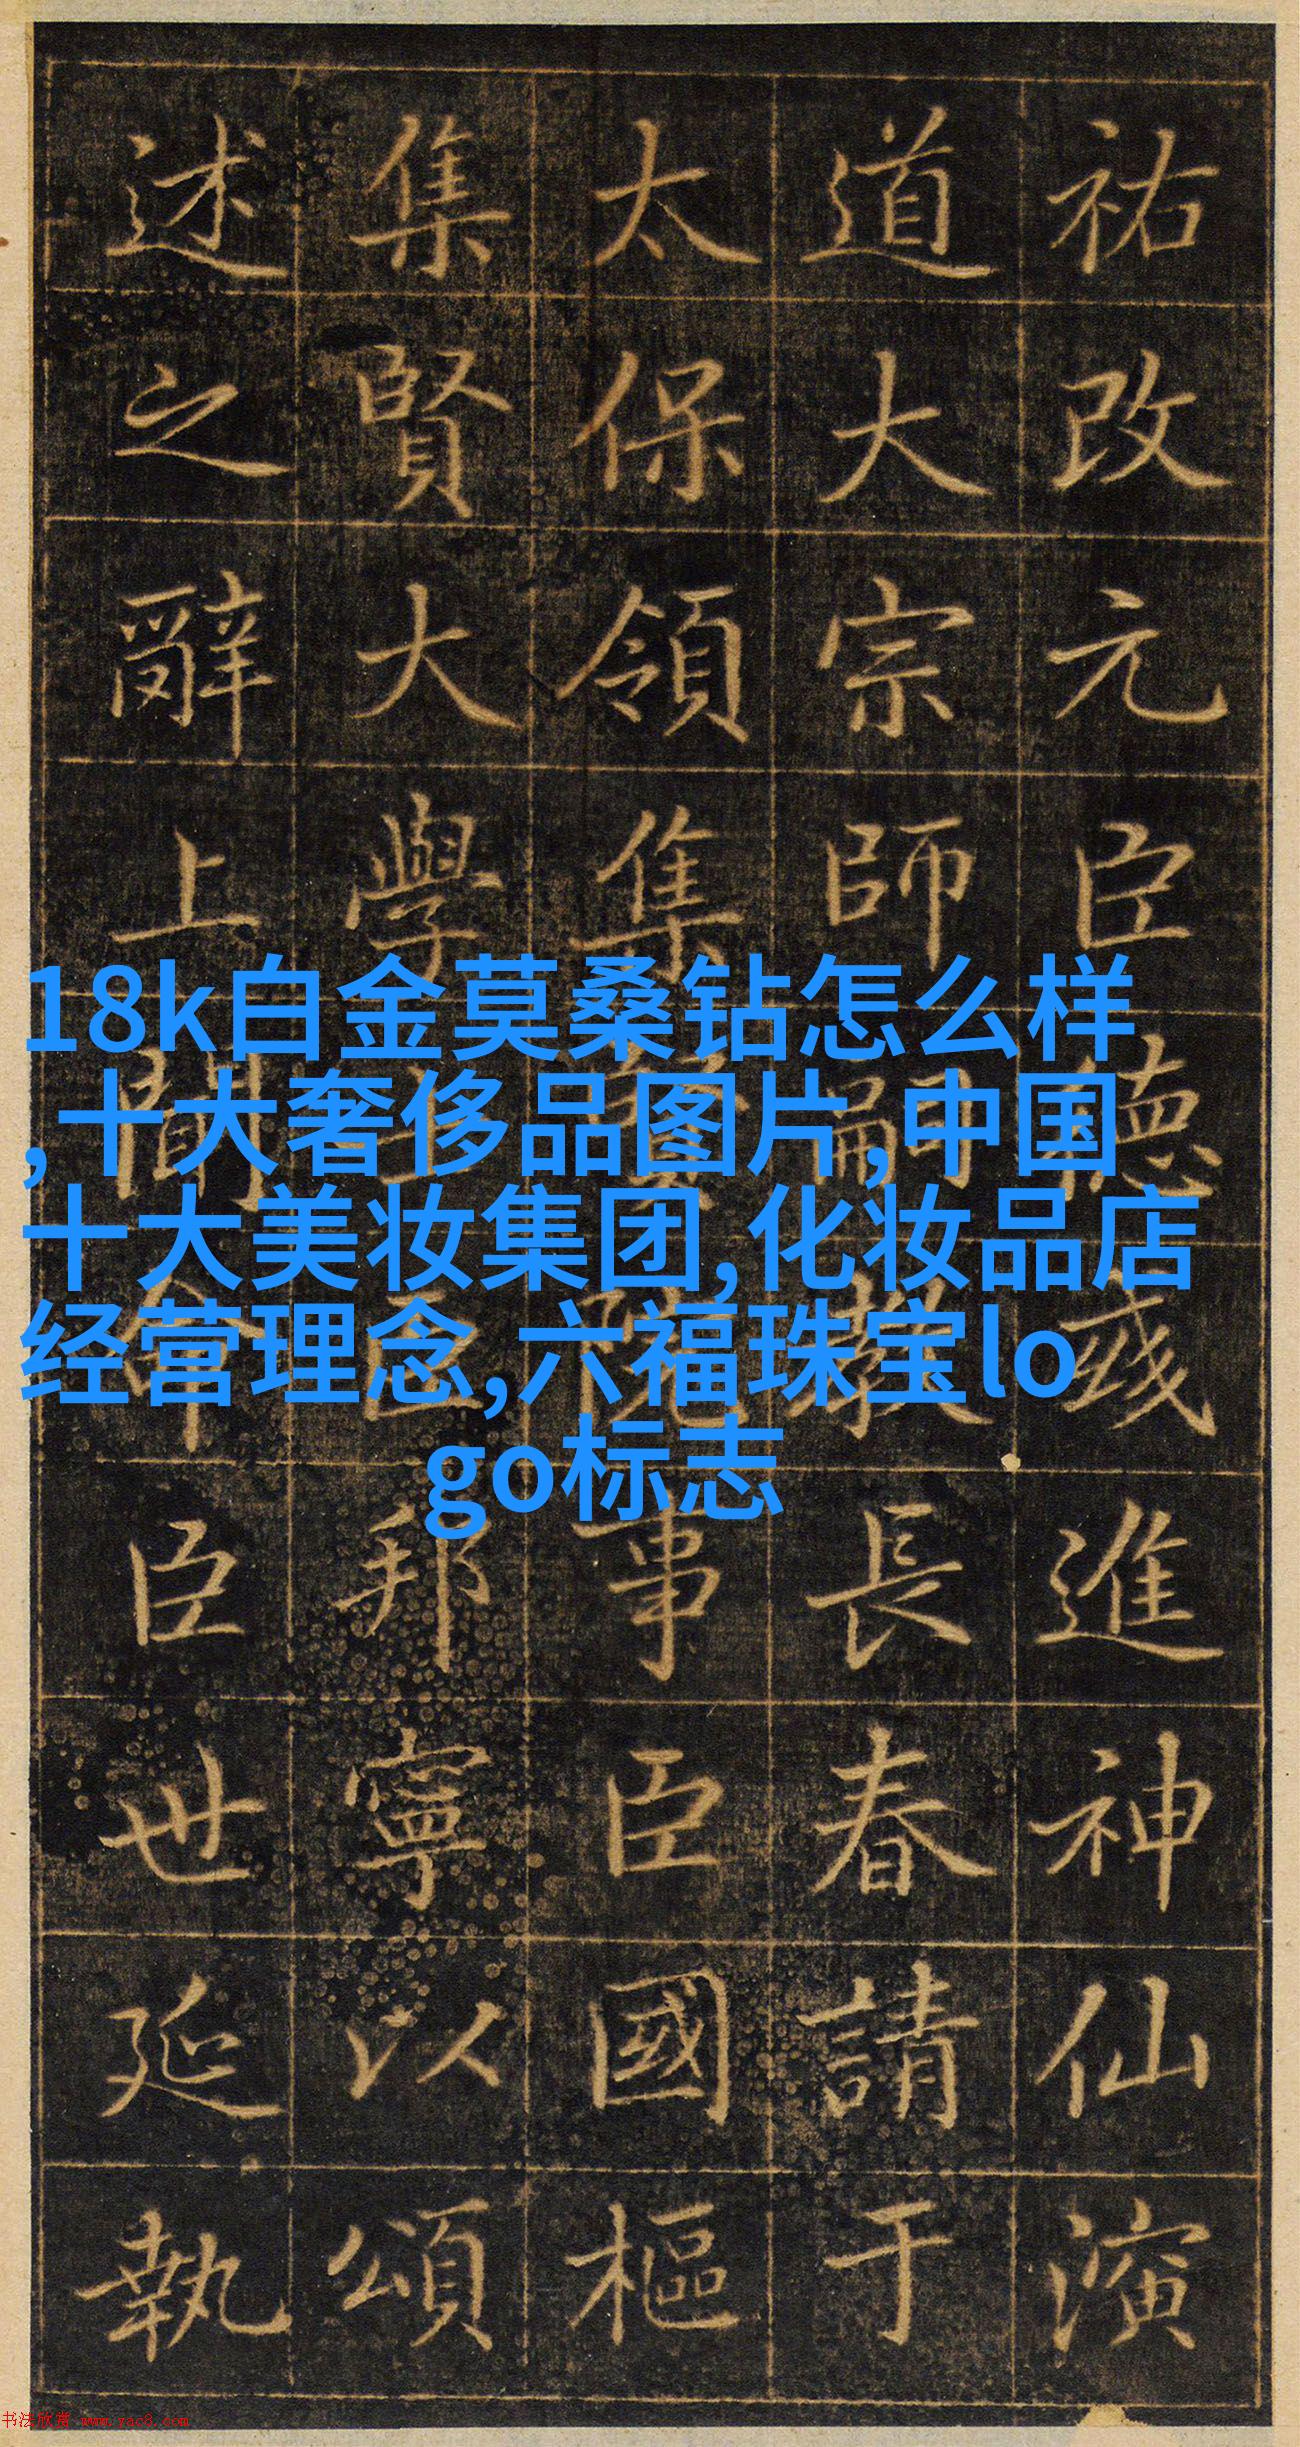 祐改元臣德彧進神仙演
道大宗師嗣教長春請于
太保領集賢院事臣國樞
集賢大學士臣邦寧以頌
述之辭上聞命臣世延執
18k白金莫桑钻怎么样
,十大奢侈品图片,中国
十大美妆集团,化妆品店
经营理念,六福珠宝lo
go标志
书法欣赏 www.yac8.com